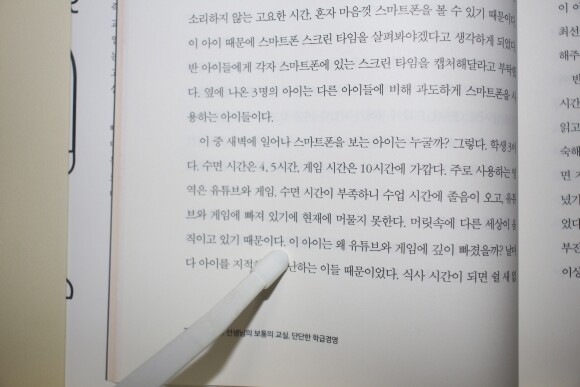 소리하지 않는 고요한 시간, 혼자 마음껏 스마트폰을 볼 수 있기 때문이다
이 아이 때문에 스마트폰 스크린 타임을 살펴봐야겠다고 생각하게 되었다
반 아이들에게 각자 스마트폰에 있는 스크린 타임을 캡처해달라고 부탁
다. 옆에 나온 3명의 아이는 다른 아이들에 비해 과도하게 스마트폰을
용하는 아이들이다.
이 중 새벽에 일어나 스마트폰을 보는 아이는 누굴까? 그렇다. 학생 3이
다. 수면 시간은 4, 5시간, 게임 시간은 10시간에 가깝다. 주로 사용하는
역은 유튜브와 게임. 수면 시간이 부족하니 수업 시간에 졸음이 오고, 유튜
브와 게임에 빠져 있기에 현재에 머물지 못한다. 머릿속에 다른 세상이
직이고 있기 때문이다. 이 아이는 왜 유튜브와 게임에 깊이 빠졌을까?
다 아이를 지적 난하는 이들 때문이었다. 식사 시간이 되면 쉴 새
선생님의 보통의 교실, 단단한 학급경영
이 아
최선
해주
반
시간
읽고
숙해
면 지
넜기
었다
번
시간
이상